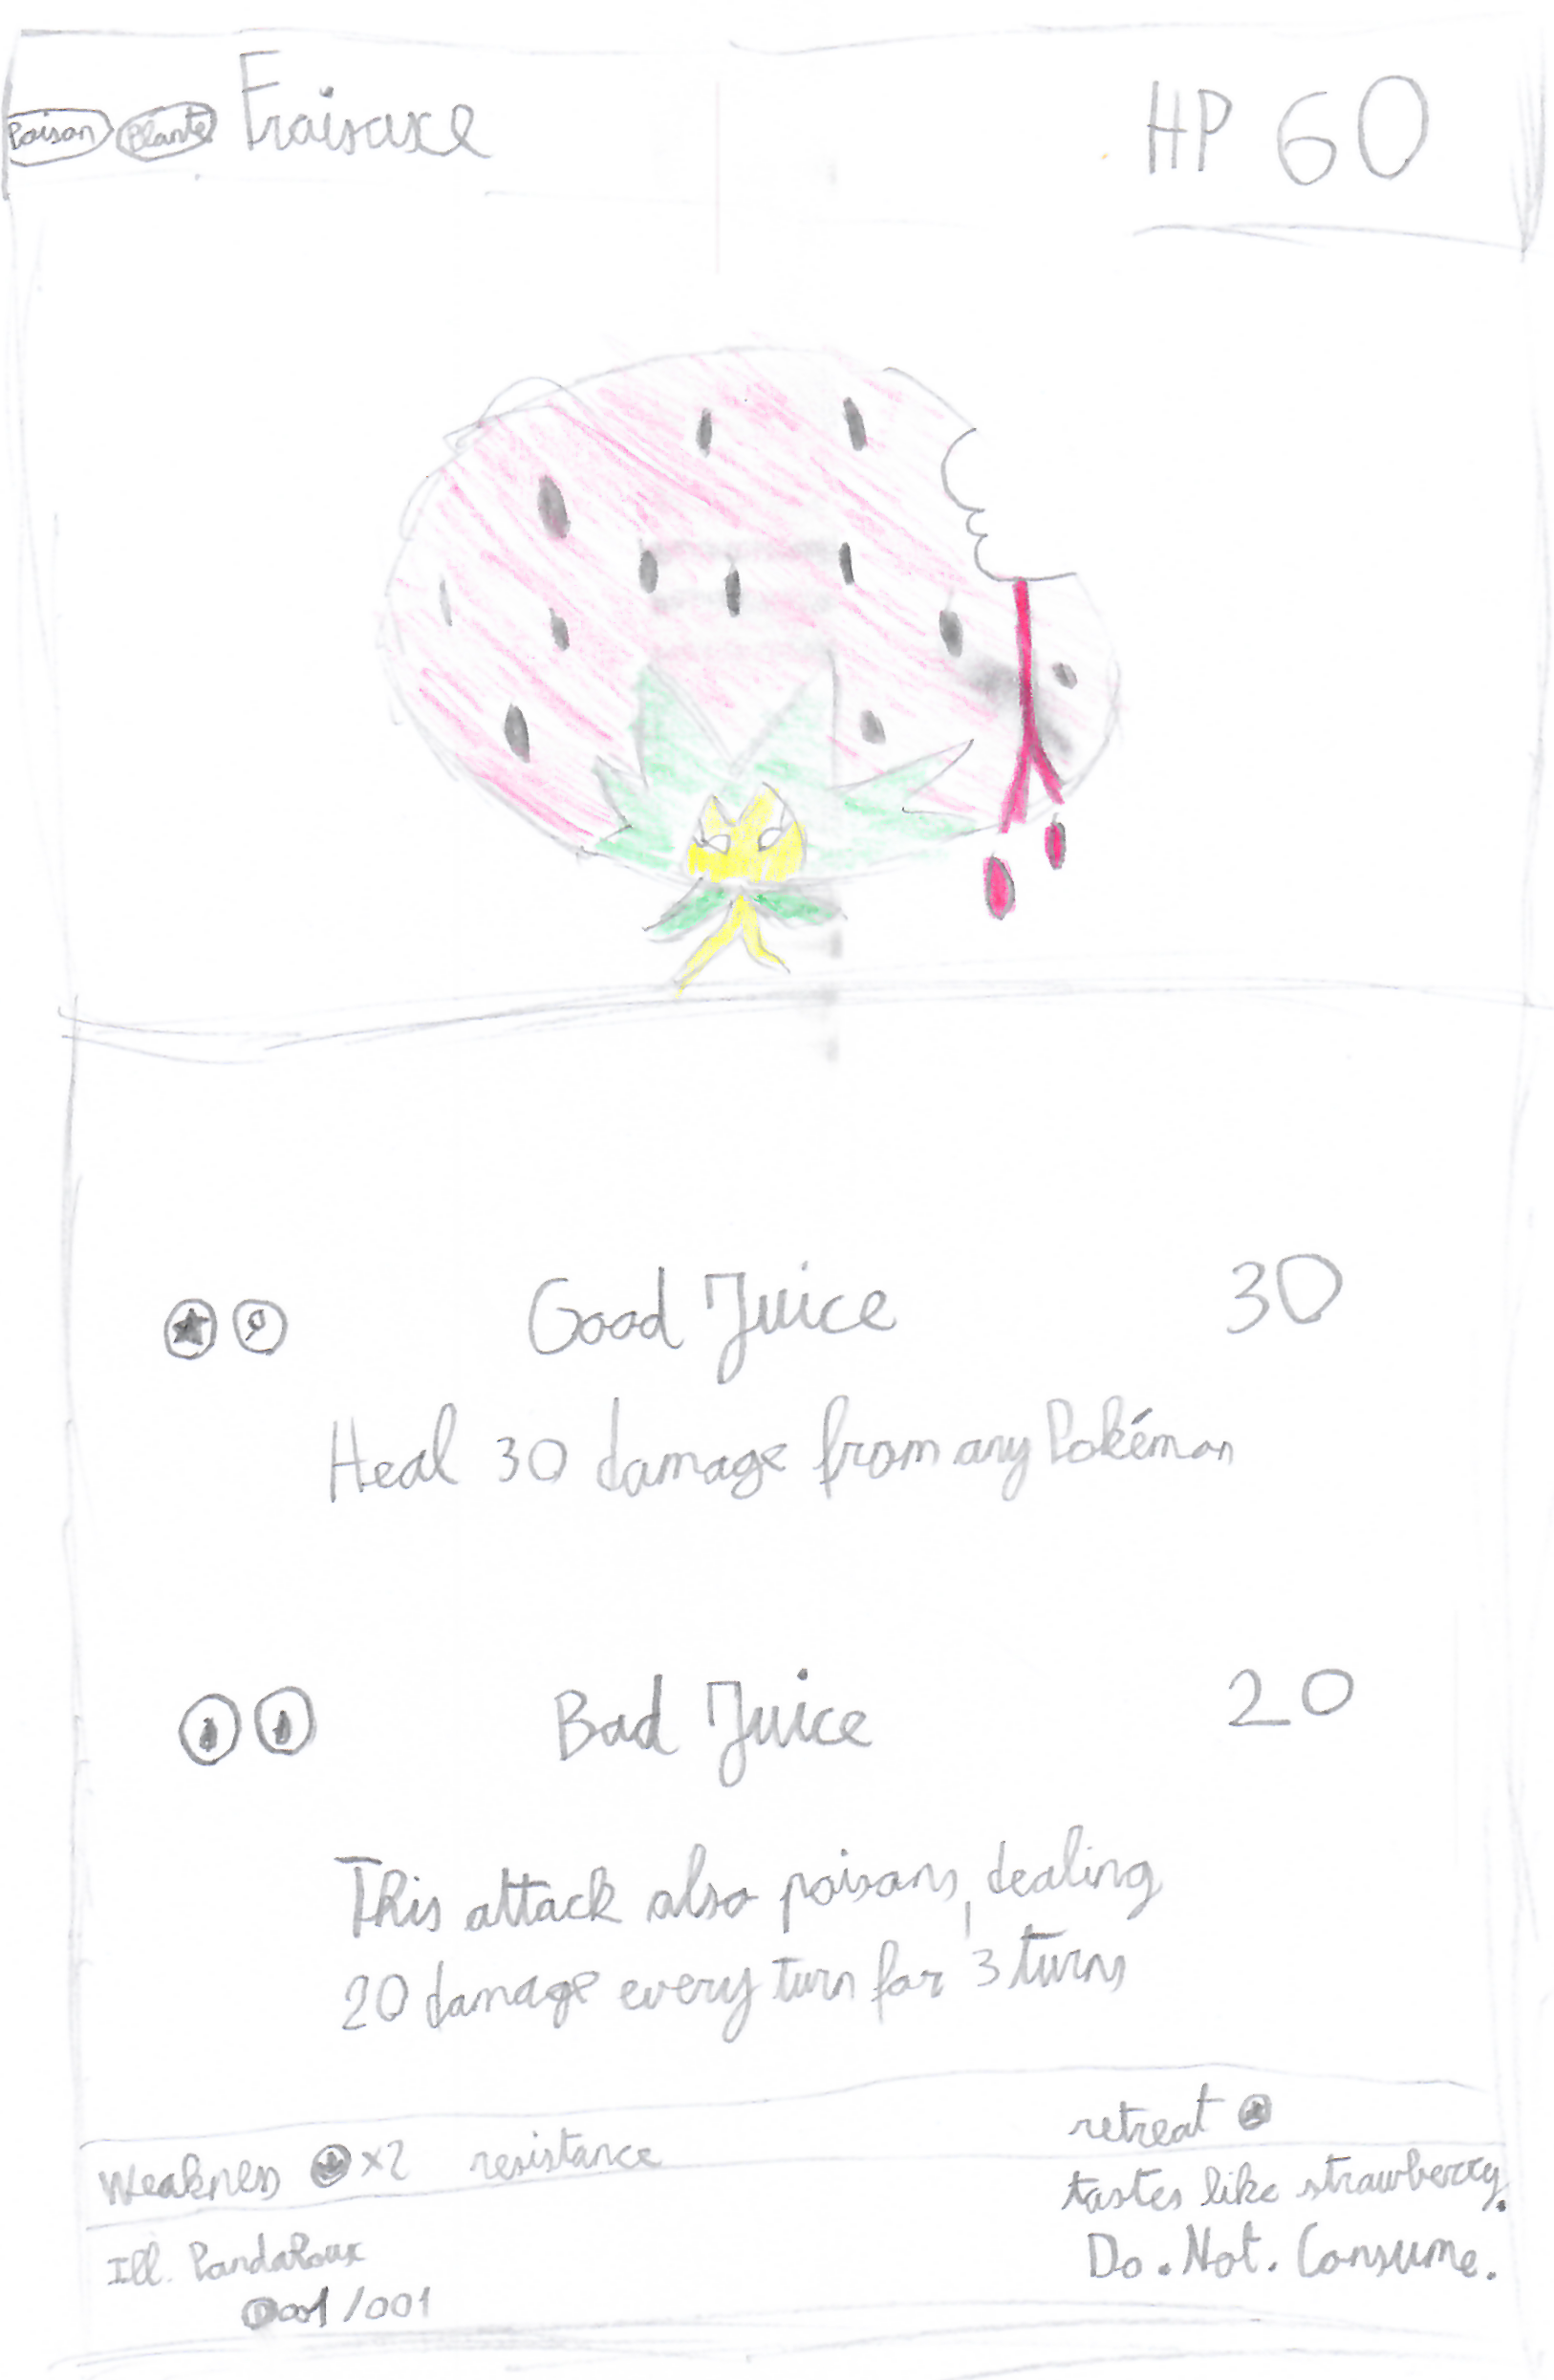 Poison Plante Fraisaxe HP 60
Good Juice 30
Heal 30 damage from any Pokémon
Bad Juice 20
This attack also poisons, dealing
20 damage every turn for 3 turns
retreat
Weakness x2 resistance
tastes like strawberry.
Do. Not. Consume.
Ill. PandaRoux
001/001